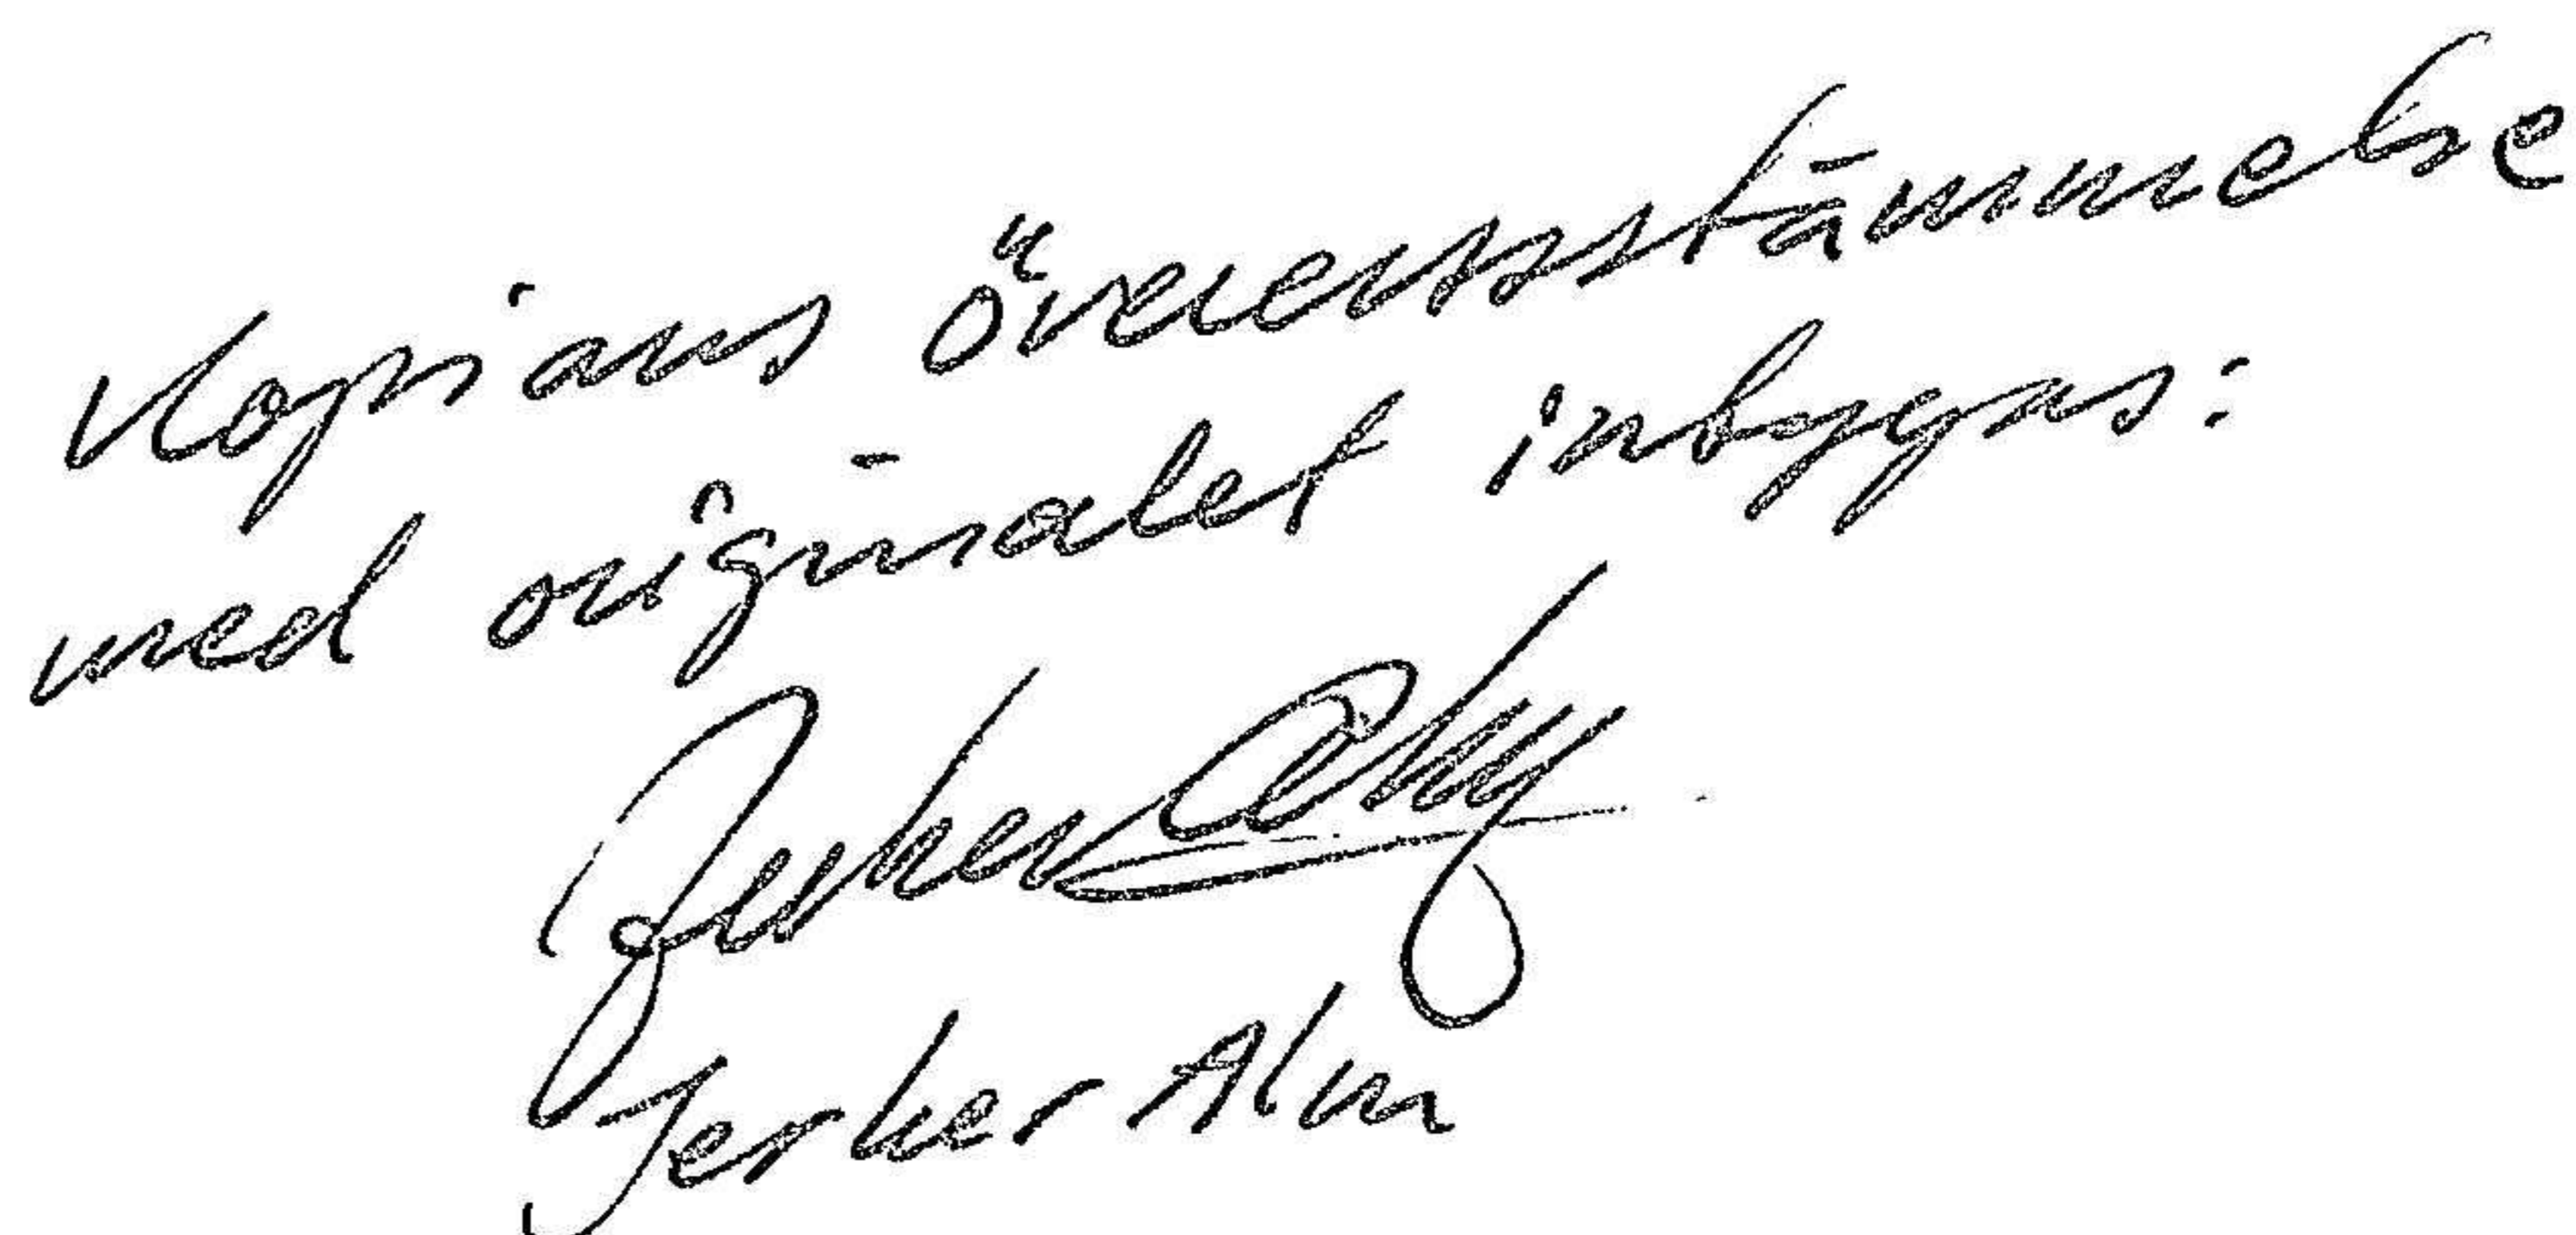 Kopians överensstämmelse
med originalet intygas:
Jerker Alm
Jerker Alm